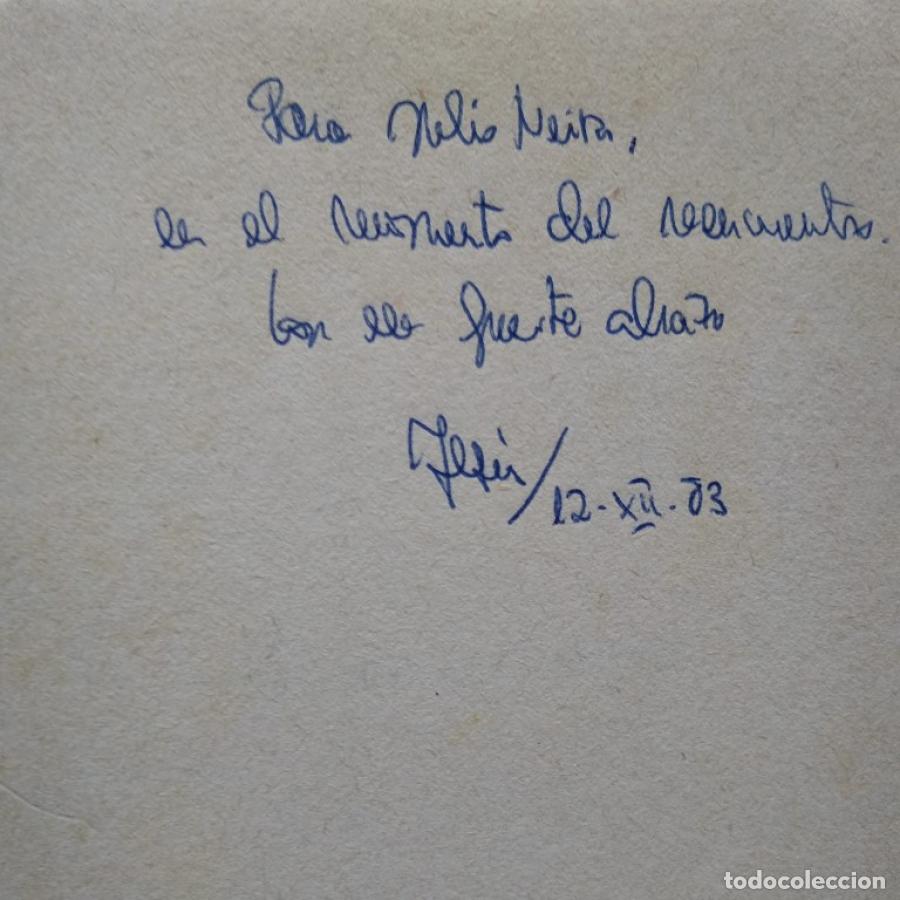 Para Julio Neira,
en el momento del reencuentro.
Con un fuerte abrazo
12-XII-83
todocoleccion